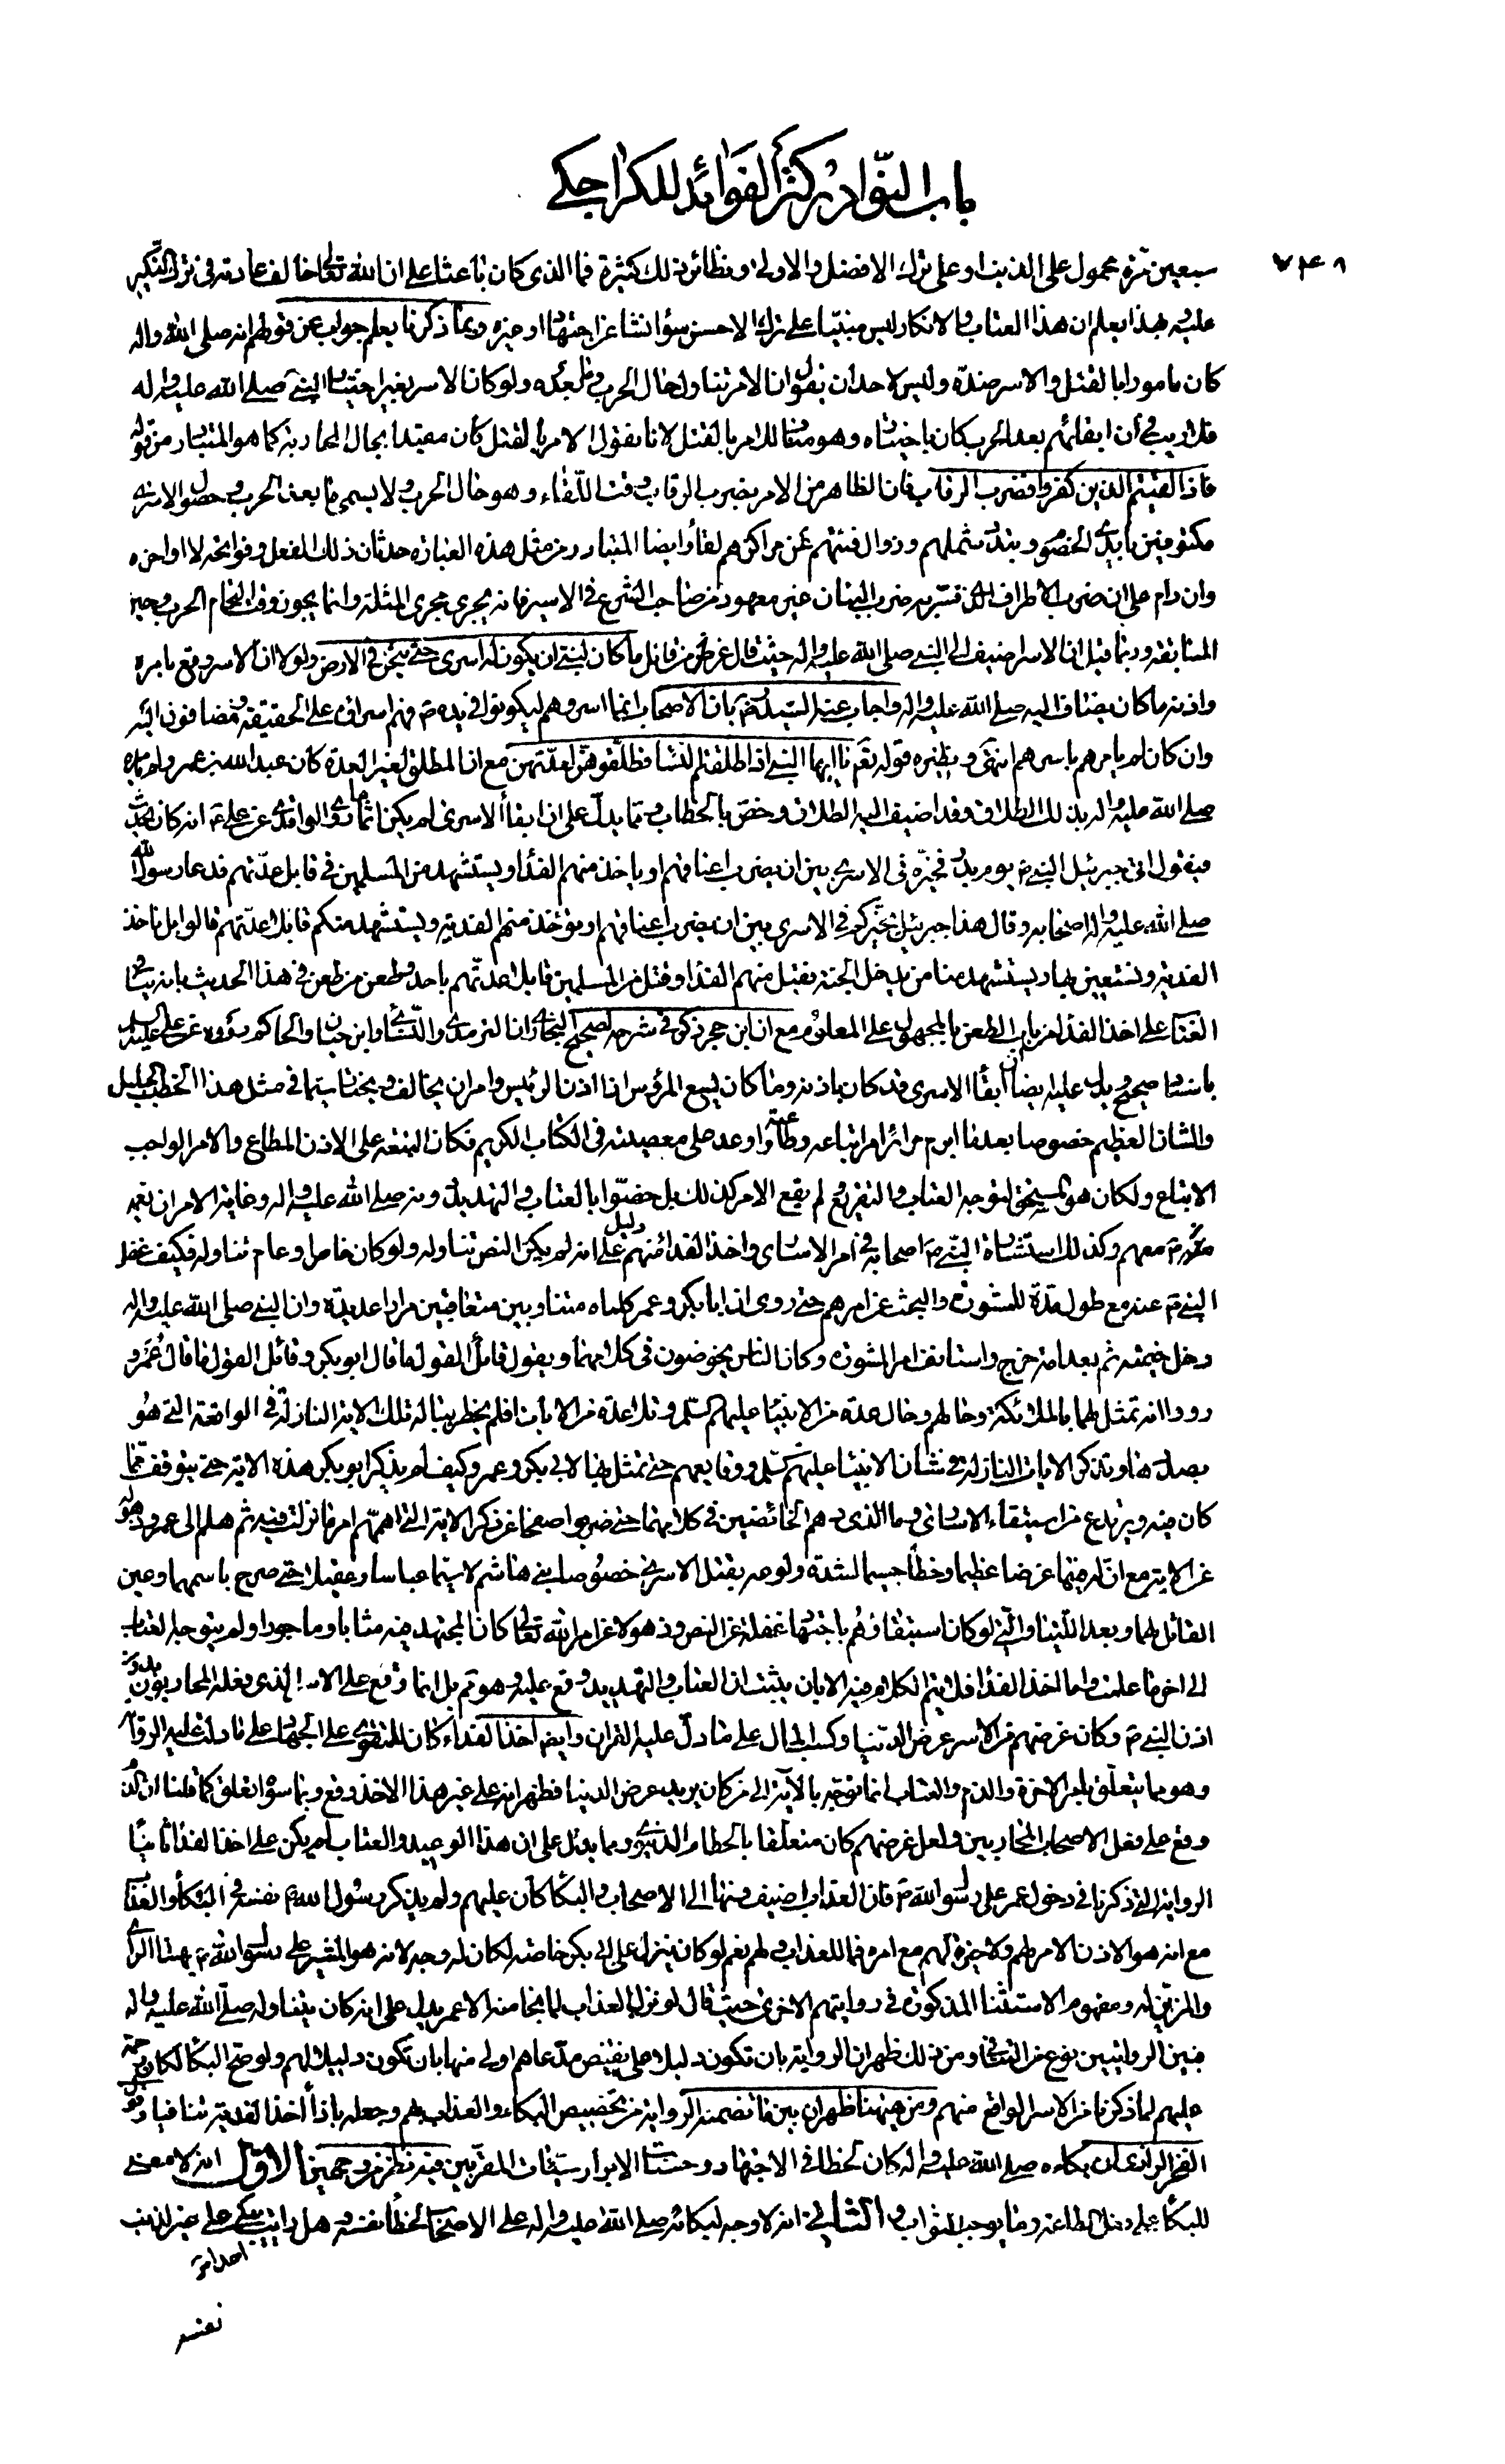 باب النوادر كنز الفوائد للكراجكي
٧٤٨
سبعين مرة محمول على الذنب او على ترك الافضل والاولى ونظائر ذلك كثيرة فما الذي كان باعثا على ان الله تعالى خالف عادته في ترك النكير
عليه وبهذا يعلم ان هذا العتاب والانكار ليس مبنيا على ترك الاحسن سواء نشا عن اجتهاد او غيره وبما ذكرنا يعلم جواب عن قولهم انه صلى الله عليه واله
كان مامورا بالقتل والاسر ضده وليس لاحد ان يقول ان الامر تناول حال الحرب وما بعده ولو كان الاسر بغير اختيار النبي صلى الله عليه واله
فلا ريب في أن ابقائهم بعد الحرب كان باختياره وهو مناف للامر بالقتل لانا نقول الامر بالقتل كان مقيدا بحال المحاربة كما هو المتبادر من قوله
فاذا لقيتم الذين كفروا فضرب الرقاب فان الظاهر من الامر بضرب الرقاب وقت اللقاء وهو حال الحرب ولا يسمى ما بعد الحرب وحصول الاسرى
مكتوفين بايدي الخصوم وتبدد شملهم وزوال فئتهم عن مراكزهم لقاء وايضا المتبادر من مثل هذه العبارة حدثان ذلك الفعل وفواتحه لا اواخره
وان دام على ان ضرب الاطراف الذي فسر به ضرب البنان غير معهود من صاحب الشرع في الاسير فانه يجري مجرى المثلة وانما يجوز وقت التحام الحرب وحين
المسابقة وربما قيل ان الاسر اضيف الى النبي صلى الله عليه واله حيث قال عز من قائل ما كان لنبي ان يكون له اسرى حتى يثخن في الارض ولولا ان الاسر وقع بامره
واذنه ما كان يضاف اليه صلى الله عليه واله واجاب عنه السيد بان الاصحاب انما اسروهم ليكونوا في يده فهم اسراؤه على الحقيقة ومضافون اليه
وان كان لم يامرهم باسرهم انتهى ونظيره قوله تعالى يا ايها النبي اذا طلقتم النساء فطلقوهن لعدتهن مع ان المطلق لغير العدة كان عبد الله بن عمر ولم يامره
صلى الله عليه واله بذلك الطلاق وقد اضيف اليه الطلاق وخص بالخطاب ومما يدل على ان ابقاء الاسرى لم يكن اثما ما روى الواقدي عن علي انه كان يحدث
ويقول اتى جبرئيل النبي يوم بدر فخيره في الاسرى بين ان يضرب اعناقهم او ياخذ منهم الفداء ويستشهد من المسلمين في قابل عدتهم فدعا رسول الله
صلى الله عليه واله اصحابه وقال هذا جبرئيل يخيركم في الاسرى بين ان يضرب اعناقهم او تؤخذ منهم الفدية ويستشهد منكم قابلا عدتهم قالوا بل ناخذ
الفدية ونستعين بها ويستشهد منا من يدخل الجنة فقبل منهم الفداء وقتل من المسلمين قابلا عدتهم باحد وطعن من طعن في هذا الحديث بانه ينافي
العتاب على اخذ الفداء من باب الطعن بالمجهول على المعلوم مع ان ابن حجر ذكر في شرحه لصحيح البخاري ان الترمذي والنسائي وابن حبان والحاكم رووه عن علي عليه السلام
باسناد صحيح ويدل عليه ايضا ان ابقاء الاسرى قد كان باذنه وما كان يسع المرؤس اذا اذن الرئيس وامر ان يخالف ويجتنب سيما في مثل هذا الخطب الجليل
والشان العظيم خصوصا بعد ما ابرم مرائر امر اتباعه وطاعته واوعد على معصيته في الكتاب الكريم فكان التبعة على الاذن المطاع والامر الواجب
الاتباع ولكان هو المستحق لتوجه العتاب والتقريع لم يقع الامر كذلك بل خصوا بالعتاب والتهديد دونه صلى الله عليه واله وغاية الامر ان يعمه
معهم وكذلك استشارة النبي اصحابه في امر الاسارى واخذ الفداء منهم دليل على انه لم يكن النص تناوله ولو كان خاص وعام تناوله فكيف غفل
النبي عنه مع طول مدة المشورة والبحث عن امرهم حتى روى ان ابا بكر وعمر كلماه متناوبين متعاقبين مرارا عديدة وان النبي صلى الله عليه واله
دخل خيمته ثم بعد امته خرج واستانف امر المشورة وكان الناس يخوضون في كلامهما ويقول قائل القول ما قال ابو بكر وقائل القول ما قال عمر و
رووا انه تمثل لهما بالملائكة وحالهم وحال عدة من الانبياء عليهم السلم وتلا عدة من الايات افلم يخطر بباله تلك الاية النازلة في الواقعة التي هو
بصددها وتذكر الايات النازلة في شان الانبياء عليهم السلم ووقايعهم حتى تمثل بها لابي بكر وعمر وكيف لم يذكر ابو بكر هذه الاية حتى يتوقف عما
كان فيه ويرتدع من استبقاء الاسارى وما الذي دهم الخائضين في كلامهما حتى ضربوا صفحا عن ذكر الاية التي اهمهم امر ما نزلت فيه ثم هلم الى عمر وذهوله
عن الاية مع ان له فيها غرضا عظيما وخطبا جسيما لشدة ولوعه بقتل الاسرى خصوصا بني هاشم لا سيما عباسا وعقيلا حتى صرح باسمهما وعين
القاتل لهما وبعد اللتيا والتي لو كان استبقاؤهم باجتهاد غفلة عن النص وذهولا عن امر الله تعالى كان المجتهد فيه مثابا وماجورا ولم يتوجه العتاب
الى اخر ما علمت واما اخذ الفداء فلا يتم الكلام فيه الا بان يثبت ان العتاب والتهديد وقع عليه وهو مم بل انما وقع على الاسر الذي فعله المحاربون بدون
اذن النبي وكان غرضهم من الاسر عرض الدنيا وكسب المال على ما دل عليه القران وايضا اخذ الفداء كان للتقوي على الجهاد على ما دلت عليه الرواية
وهو مما يتعلق بامر الاخرة والذم والعتاب انما توجه بالاية الى من كان يريد عرض الدنيا فظهر انه على غير هذا الاخذ وقع وبما سواه تعلق كما قلنا ان الذم
وقع على فعل الاصحاب المحاربين ولعل غرضهم كان متعلقا بالحطام الدنيوي ومما يدل على ان هذا الوعيد والعتاب لم يكن على اخذ الفداء ثانيا
الرواية التي ذكرنا في دخول عمر على رسول الله فان العذاب اضيف فيها الى الاصحاب والبكاء كان عليهم ولم يذكر رسول الله نفسه في البكاء والعذاب
مع انه هو الاذن الامر لهم ولا خيرة لهم مع امره فما للعذاب ولهم نعم لو كان ينزل على ابي بكر خاصة لكان له وجه لانه هو المشير على رسول الله بهذا الراي
والمزين له ومفهوم الاستثناء المذكورة في روايتهم الاخرى حيث قال لو نزل العذاب لما نجا منه الا عمر يدل على انه كان يتناوله صلى الله عليه واله
فبين الروايتين نوع من التدافع ومن ذلك ظهر ان الرواية بان تكون دليلا على نقيض مدعاهم اولى منها بان تكون دليلا لهم ولو صح البكاء لكان رحمة
عليهم لما ذكرنا من الاسر الواقع منهم ومن هيهنا ظهر ان بين ما تضمنه الرواية من تخصيص البكاء والعذاب بهم وجعله بازاء اخذ الفدية تنافيا وقول
الفخر الرازي ان بكاءه صلى الله عليه واله كان لخطا في الاجتهاد وحسنات الابرار سيئات المقربين فيه نظر من وجهين الاول انه لا معنى
للبكاء على فعل الطاعة وما يوجب الثواب والثاني انه لا وجه لبكائه صلى الله عليه واله على الاصحاب لخطا نفسه وهل رايت يبكي على غير لذنب
احدا من
نفسه